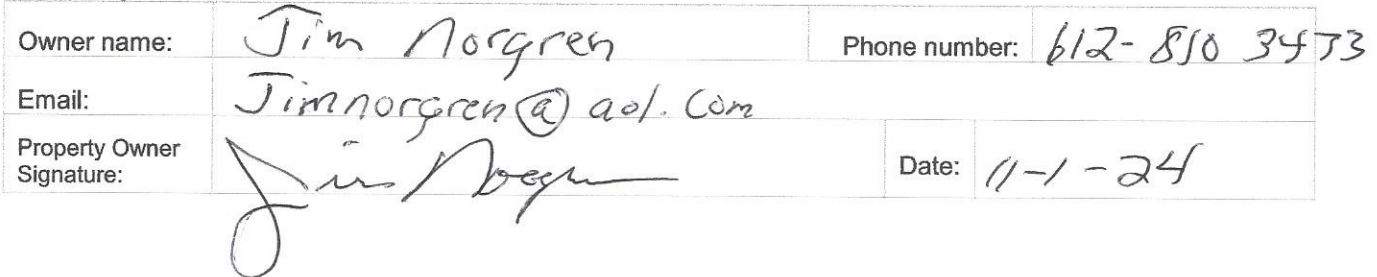 Owner name: Jim Norgren Phone number: 612-810 3473
Email: Jimnorgren@aol.com
Property Owner Signature: Jim Norgren Date: 11-1-24